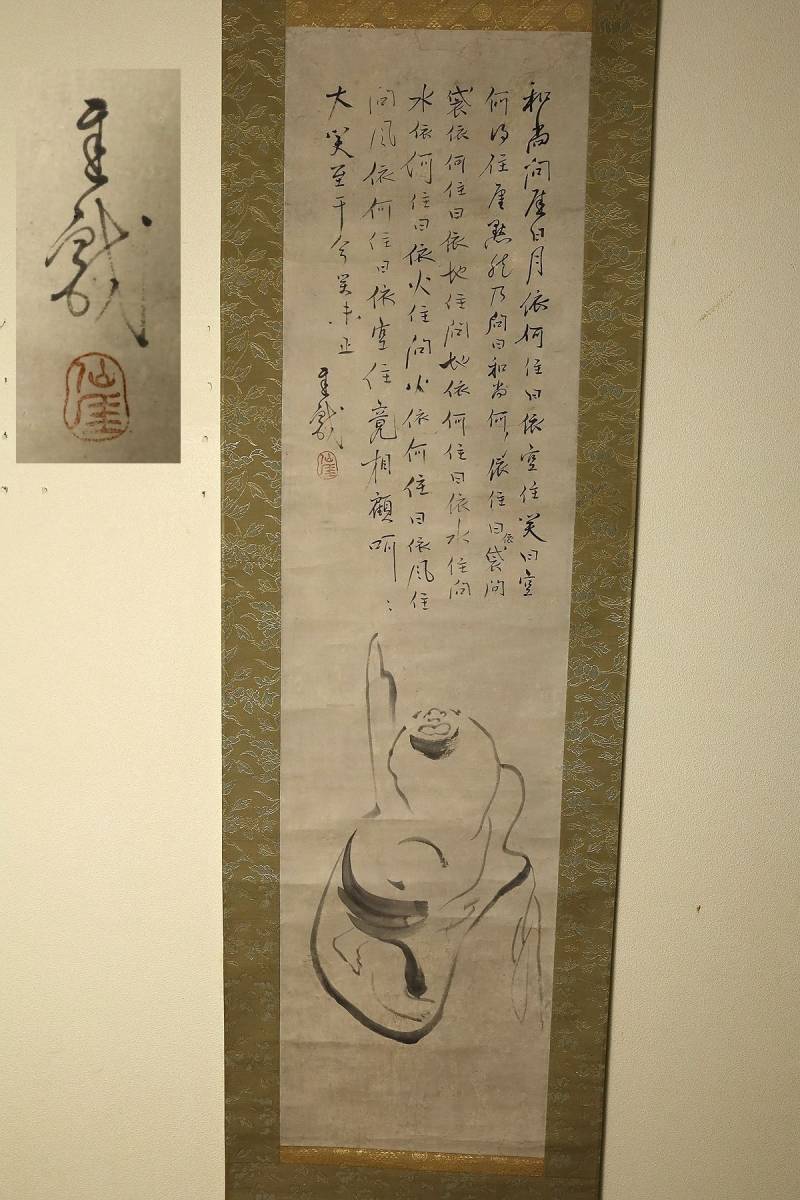 和尚問厓日月依何住曰依空住笑曰空
何以住厓默然乃問曰和尚何依住曰依袋問
袋依何住曰依地住問地依何住曰依水住問
水依何住曰依火住問火依何住曰依風住
問風依何住曰依空住竟相顧呵〻
大笑至于今笑未止
厓戯
仙厓
厓戯
仙厓